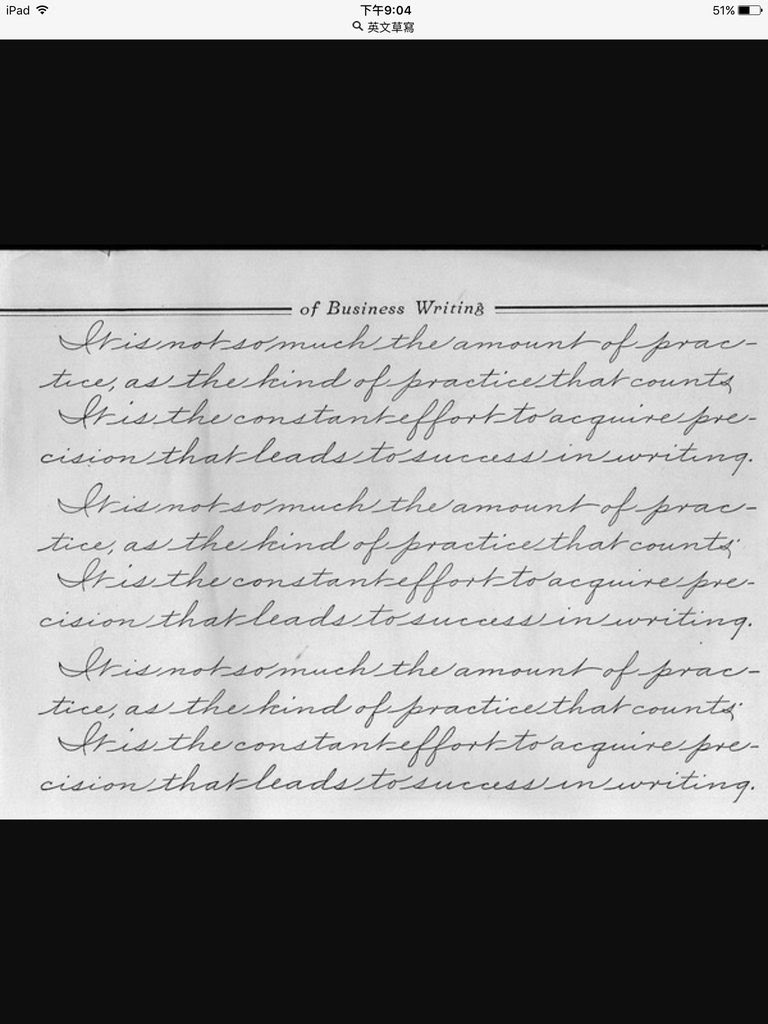 iPad 下午9:04 51%
英文草寫
of Business Writing
It is not so much the amount of prac-
tice, as the kind of practice that counts,
It is the constant effort to acquire pre-
cision that leads to success in writing.
It is not so much the amount of prac-
tice, as the kind of practice that counts;
It is the constant effort to acquire pre-
cision that leads to success in writing.
It is not so much the amount of prac-
tice, as the kind of practice that counts;
It is the constant effort to acquire pre-
cision that leads to success in writing.